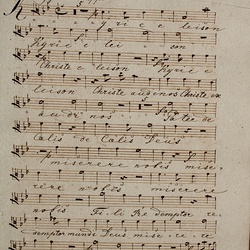 Kyrie e leison
Kyrie e lei son
Christe e leison Kyrie e
leison Christe audi nos Christe ex
au di nos Pa ter de
Calis de Calis Deus
miserere nobis mise,
rere nobis miserere
nobis Fi li Re demptor re
demptor mundi Deus mise, re, re